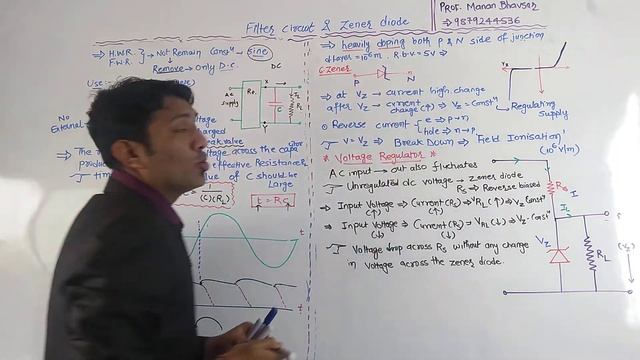 Filter circuit & Zener diode
PROF. Manan Bhavsar
⇒ 9879244536
⇒ H.W.R.
F.W.R.
Not Remain Const^n
sine
Remove → Only D.C.
Use:-
DC
AC
supply
Re.
X
Y
C
I_L
R_L
No
External
voltage
charged
peak value
⇒ The
voltage across the capacitor
produ
effective Resistance R_L
time
value of C should be
Large
(C)(R_L)
t = RC
t
t
⇒ heavily doping both P & N side of junction
d Layer = 10^-6 m. R.b.v = 5v ⇒
G-Zener
P
N
⇒ at Vz → current high change
after Vz → current change (↑) ⇒ Vz = Const^n
Regulating
supply
Vz
⊙ Reverse current
e ⇒ P → n
hole ⇒ n → P
V = Vz ⇒ Break Down ⇒ 'Field Ionisation'
(10^6 v/m)
* Voltage Regulator *
AC input → out also fluctuates
Unregulated dc voltage → zener diode
Rs ⇒ Reverse biased
⇒ Input Voltage ⇒ Current (Rs) ⇒ V_RL (↑) ⇒ Vz Const^n
(↑)
(↑)
⇒ Input Voltage ⇒ Current (Rs) ⇒ V_RL (↓) ⇒ Vz - Const^n
(↓)
(↓)
Voltage drop across Rs without any change
in voltage across the zener diode.
Rs
I
I_L
Vz
R_L
(Vz)